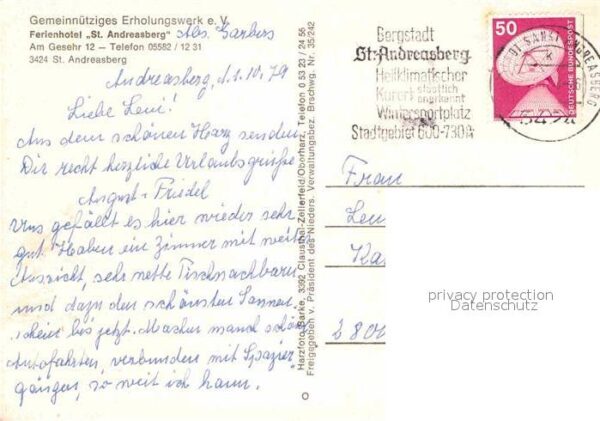 Gemeinnütziges Erholungswerk e. V.
Ferienhotel „St. Andreasberg" Abs. Garbers
Am Gesehr 12 – Telefon 05582 / 12 31
3424 St. Andreasberg
Andreasberg, d. 1.10.79
Liebe Leni!
Aus dem schönen Harz senden
Dir recht herzliche Urlaubsgrüße
August + Friedel
Uns gefällt es hier wieder sehr
gut. Haben ein Zimmer mit weiter
Aussicht, sehr nette Tischnachbarn
und dazu den schönsten Sonnen-
schein bis jetzt. Machen manch schöne
Autofahrten, verbunden mit Spazier
gängen, so weit ich kann.
Harzfoto Barke, 3392 Clausthal-Zellerfeld/Oberharz, Telefon 0 53 23 / 24 56
Freigegeben v. Präsident des Nieders. Verwaltungsbez. Brschwg. Nr. 35/242
Bergstadt
St. Andreasberg
Heilklimatischer
Kurort staatlich anerkannt
Wintersportplatz
Stadtgebiet 600-730m
50
DEUTSCHE BUNDESPOST
SANKT ANDREASBERG
3424
Frau
280
privacy protection
Datenschutz